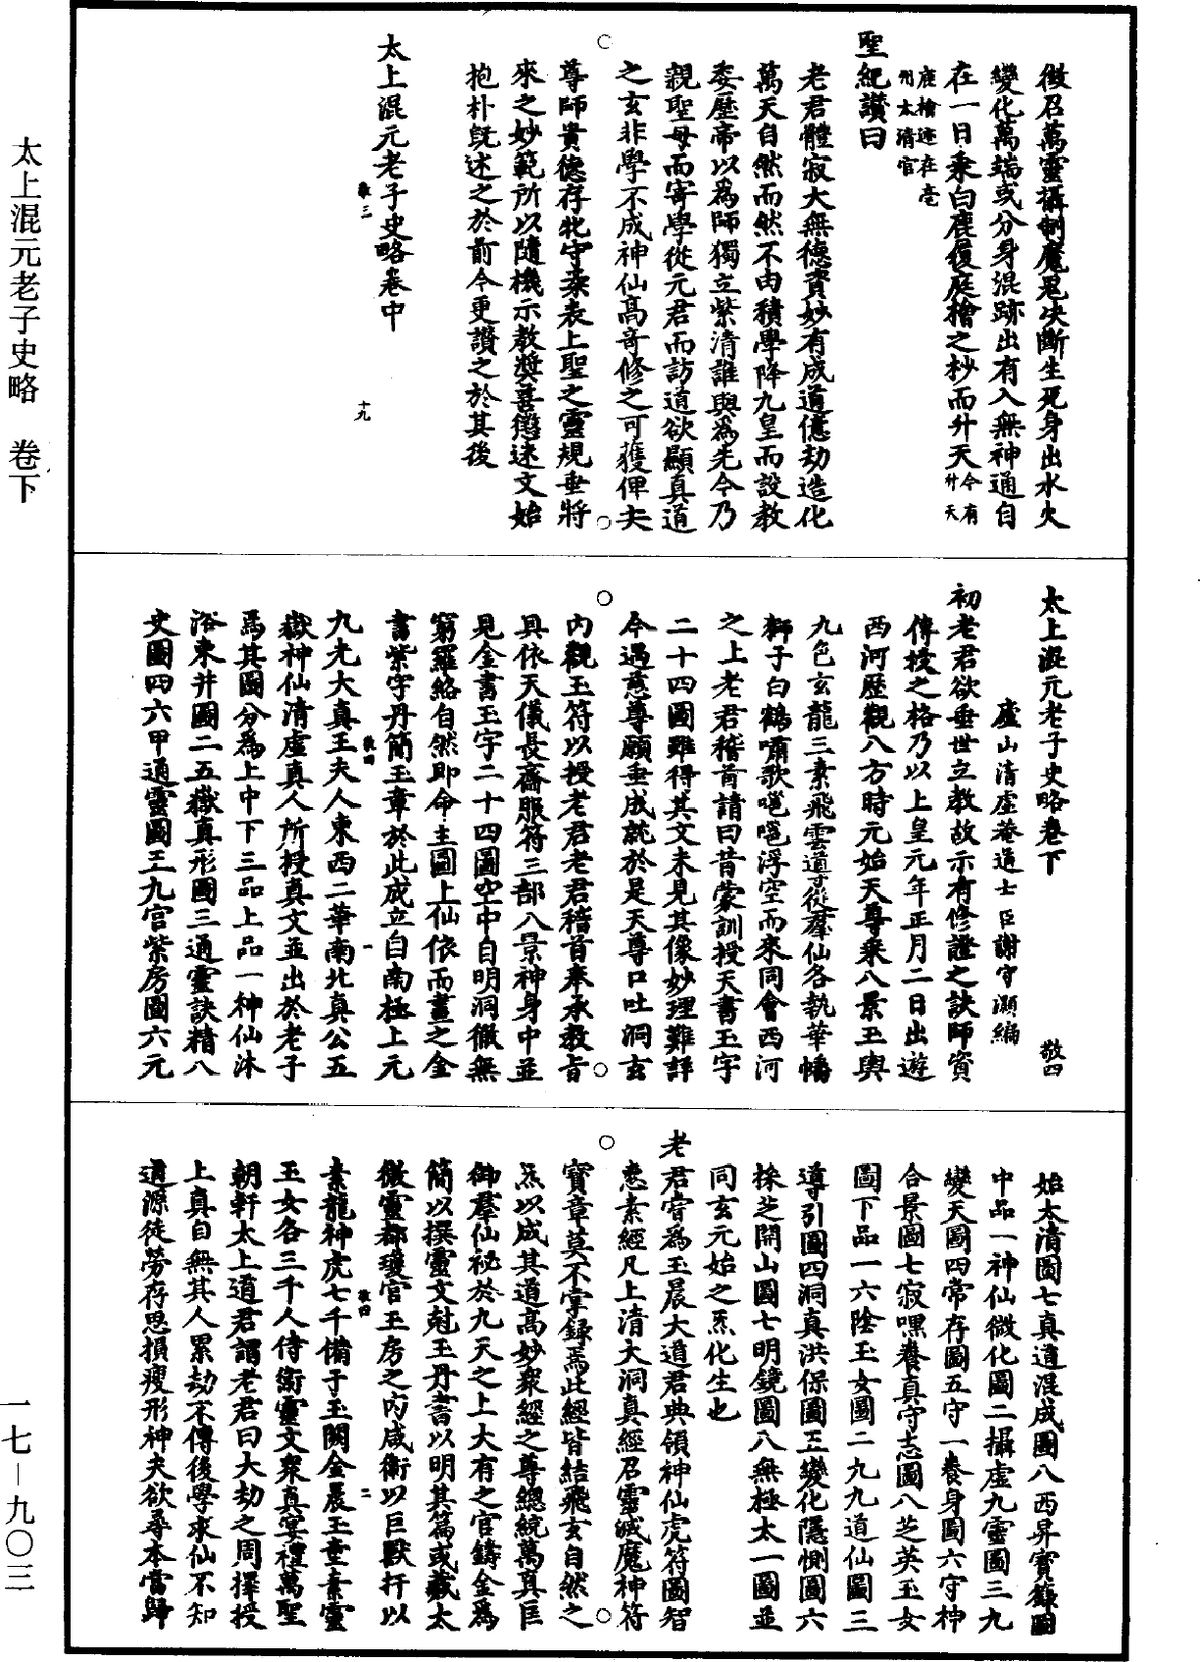 徵召萬靈攝制魔鬼決斷生死身出水火
變化萬端或分身混跡出有入無神通自
在一日乘白鹿復庭檜之杪而升天今有升天
鹿檜迹在亳州太清宮
聖紀讚曰
老君體寂大無德資妙有成道億劫造化
萬天自然而然不由積學降九皇而設教
委歷帝以為師獨立紫清誰與為先今乃
親聖母而寄學從元君而訪道欲顯真道
之玄非學不成神仙高奇修之可獲俾夫
尊師貴德存牝守柔表上聖之靈規垂將
來之妙範所以隨機示教獎善懲迷文始
抱朴既述之於前今更讚之於其後
敬三
十九
太上混元老子史略卷中
太上混元老子史略卷下
敬四
廬山清虛菴道士臣謝守灝編
初老君欲垂世立教故示有修證之訣師資
傳授之格乃以上皇元年正月二日出遊
西河歷觀八方時元始天尊乘八景玉輿
九色玄龍三素飛雲導從羣仙各執華幡
獅子白鶴嘯歌邕邕浮空而來同會西河
之上老君稽首請曰昔蒙訓授天書玉字
二十四圖雖得其文未見其像妙理難詳
今遇慈尊願垂成就於是天尊口吐洞玄
內觀玉符以授老君老君稽首奉承教旨
具依天儀長齋服符三部八景神身中並
見金書玉字二十四圖空中自明洞徹無
窮羅絡自然即命主圖上仙依而畫之金
書紫字丹簡玉章於此成立自南極上元
敬四
一
九光大真王夫人東西二華南北真公五
嶽神仙清虛真人所授真文並出於老子
焉其圖分為上中下三品上品一神仙沐
浴東井圖二五嶽真形圖三通靈訣精八
史圖四六甲通靈圖五九宮紫房圖六元
始太清圖七真道混成圖八西昇寶籙圖
中品一神仙微化圖二攝虛九靈圖三九
變天圖四常存圖五守一養身圖六守神
合景圖七寂嘿養真守志圖八芝英玉女
圖下品一六陰玉女圖二九九道仙圖三
導引圖四洞真洪保圖五變化隱惻圖六
採芝開山圖七明鏡圖八無極太一圖並
同玄元始之炁化生也
老君嘗為玉晨大道君典領神仙虎符圖智
慧素經凡上清大洞真經召靈滅魔神符
寶章莫不掌錄焉此經皆結飛玄自然之
炁以成其道高妙眾經之尊總統萬真臣
御羣仙祕於九天之上大有之宮鑄金為
簡以撰靈文尅玉丹書以明其篇或藏太
微靈都瓊宮玉房之內咸衛以巨獸扞以
敬四
二
素龍神虎七千備于玉闕金晨玉童素靈
玉女各三千人侍衛靈文眾真宴禮萬聖
朝軒太上道君謂老君曰大劫之周擇授
上真自無其人累劫不傳後學求仙不知
道源徒勞存思損瘦形神夫欲尋本當歸
太上混元老子史略　卷下
一七－九〇三